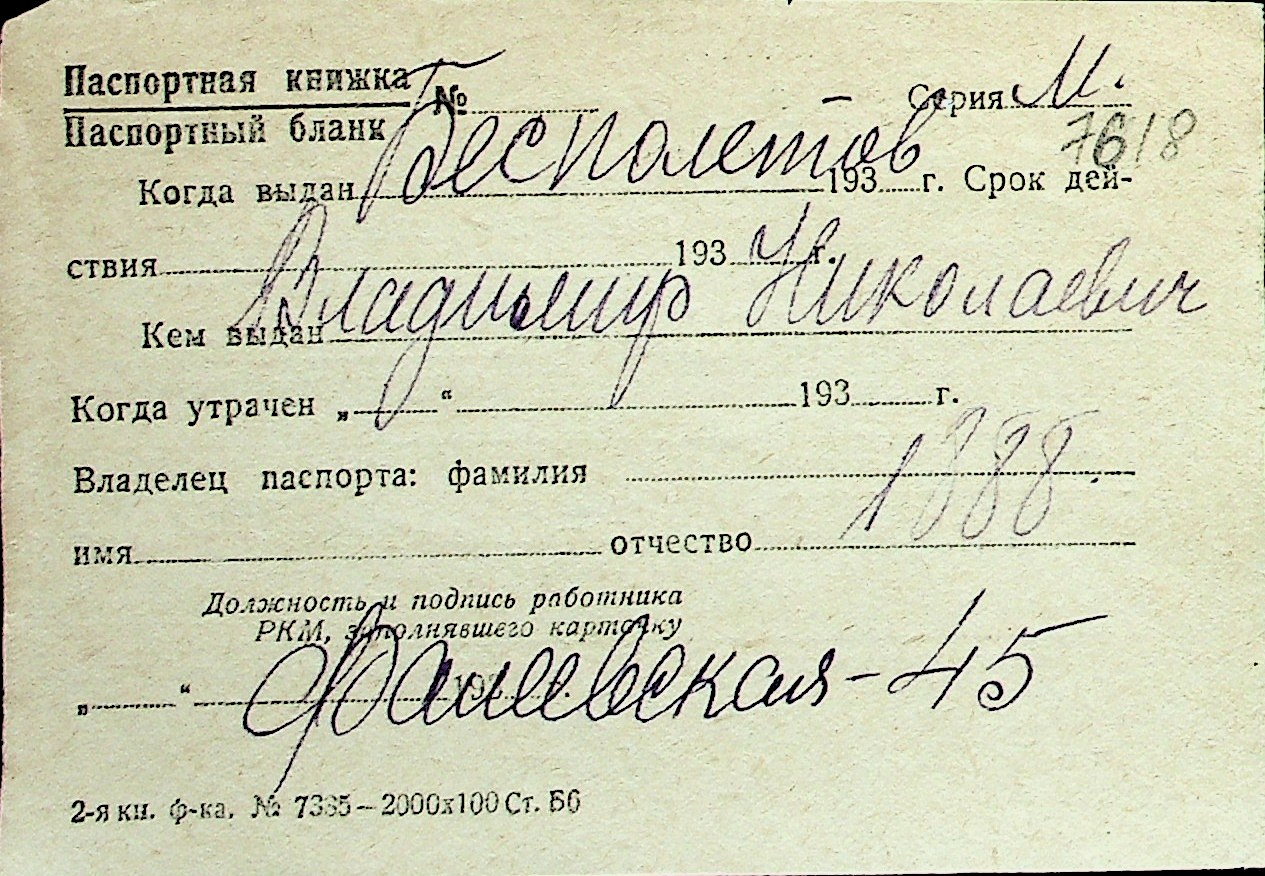 Паспортная книжка № Серия М.
Паспортный бланк
7618
Бесполетов
Когда выдан 193 г. Срок дей-
ствия 193 г.
Владимир Николаевич
Кем выдан
Когда утрачен „ “ 193 г.
1888
Владелец паспорта: фамилия
имя отчество
Должность и подпись работника
РКМ, заполнявшего карточку
„ “ 193
45
2-я кн. ф-ка. № 7385—2000х100 Ст. Б6